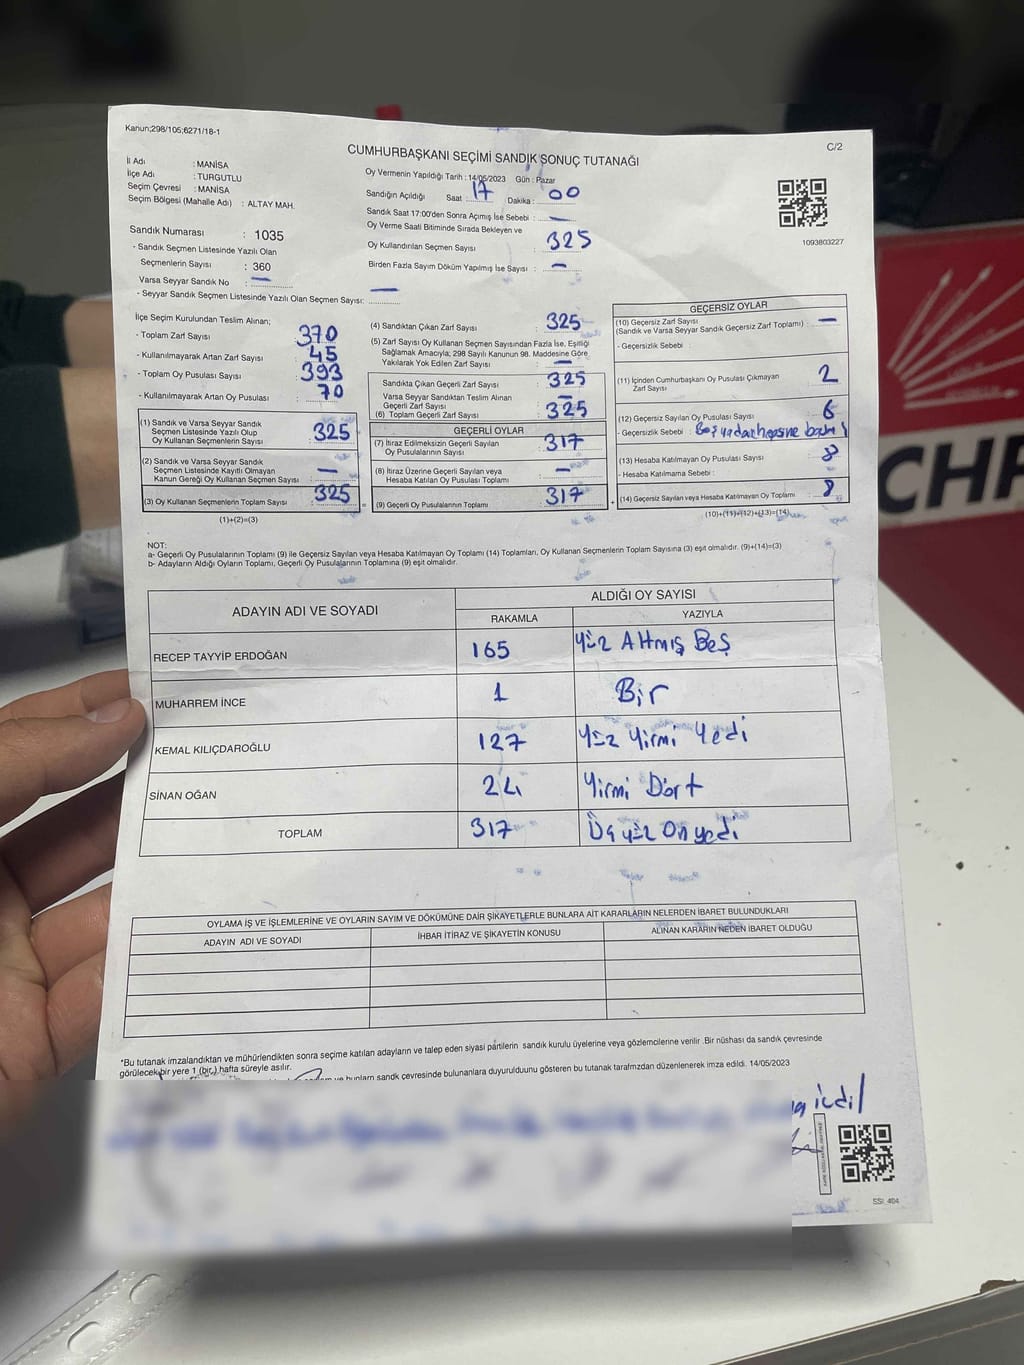 Kanun;298/105;6271/18-1
C/2
CUMHURBAŞKANI SEÇİMİ SANDIK SONUÇ TUTANAĞI
İl Adı : MANİSA
İlçe Adı : TURGUTLU
Seçim Çevresi : MANİSA
Seçim Bölgesi (Mahalle Adı) : ALTAY MAH.
Oy Vermenin Yapıldığı Tarih : 14/05/2023 Gün : Pazar
Sandığın Açıldığı Saat : 17 Dakika : 00
Sandık Saat 17:00'den Sonra Açmış İse Sebebi : —
Oy Verme Saati Bitiminde Sırada Bekleyen ve
Oy Kullandırılan Seçmen Sayısı : 325
Birden Fazla Sayım Döküm Yapılmış İse Sayısı : —
1093803227
Sandık Numarası : 1035
- Sandık Seçmen Listesinde Yazılı Olan
Seçmenlerin Sayısı : 360
Varsa Seyyar Sandık No : —
- Seyyar Sandık Seçmen Listesinde Yazılı Olan Seçmen Sayısı: —
İlçe Seçim Kurulundan Teslim Alınan;
- Toplam Zarf Sayısı : 370
- Kullanılmayarak Artan Zarf Sayısı : 45
- Toplam Oy Pusulası Sayısı : 393
- Kullanılmayarak Artan Oy Pusulası : 70
(1) Sandık ve Varsa Seyyar Sandık
Seçmen Listesinde Yazılı Olup
Oy Kullanan Seçmenlerin Sayısı : 325
(2) Sandık ve Varsa Seyyar Sandık
Seçmen Listesinde Kayıtlı Olmayan
Kanun Gereği Oy Kullanan Seçmen Sayısı : —
(3) Oy Kullanan Seçmenlerin Toplam Sayısı : 325
(1)+(2)=(3)
(4) Sandıktan Çıkan Zarf Sayısı : 325
(5) Zarf Sayısı Oy Kullanan Seçmen Sayısından Fazla İse, Eşitliği
Sağlamak Amacıyla; 298 Sayılı Kanunun 98. Maddesine Göre
Yakılarak Yok Edilen Zarf Sayısı : —
Sandıkta Çıkan Geçerli Zarf Sayısı : 325
Varsa Seyyar Sandıktan Teslim Alınan
Geçerli Zarf Sayısı : —
(6) Toplam Geçerli Zarf Sayısı : 325
GEÇERLİ OYLAR
(7) İtiraz Edilmeksizin Geçerli Sayılan
Oy Pusulalarının Sayısı : 317
(8) İtiraz Üzerine Geçerli Sayılan veya
Hesaba Katılan Oy Pusulası Toplamı : —
(9) Geçerli Oy Pusulalarının Toplamı : 317
GEÇERSİZ OYLAR
(10) Geçersiz Zarf Sayısı
(Sandık ve Varsa Seyyar Sandık Geçersiz Zarf Toplamı) : —
- Geçersizlik Sebebi :
(11) İçinden Cumhurbaşkanı Oy Pusulası Çıkmayan
Zarf Sayısı : 2
(12) Geçersiz Sayılan Oy Pusulası Sayısı : 6
- Geçersizlik Sebebi : Boş yadan hepsine
(13) Hesaba Katılmayan Oy Pusulası Sayısı : 8
- Hesaba Katılmama Sebebi :
(14) Geçersiz Sayılan veya Hesaba Katılmayan Oy Toplamı : 8
(10)+(11)+(12)+(13)=(14)
NOT:
a- Geçerli Oy Pusulalarının Toplamı (9) ile Geçersiz Sayılan veya Hesaba Katılmayan Oy Toplamı (14) Toplamları, Oy Kullanan Seçmenlerin Toplam Sayısına (3) eşit olmalıdır. (9)+(14)=(3)
b- Adayların Aldığı Oyların Toplamı, Geçerli Oy Pusulalarının Toplamına (9) eşit olmalıdır.
ADAYIN ADI VE SOYADI ALDIĞI OY SAYISI
RAKAMLA YAZIYLA
RECEP TAYYİP ERDOĞAN 165 Yüz Altmış Beş
MUHARREM İNCE 1 Bir
KEMAL KILIÇDAROĞLU 127 Yüz Yirmi Yedi
SİNAN OĞAN 24 Yirmi Dört
TOPLAM 317 Üç yüz On yedi
OYLAMA İŞ VE İŞLEMLERİNE VE OYLARIN SAYIM VE DÖKÜMÜNE DAİR ŞİKAYETLERLE BUNLARA AİT KARARLARIN NELERDEN İBARET BULUNDUKLARI
ADAYIN ADI VE SOYADI İHBAR İTİRAZ VE ŞİKAYETİN KONUSU ALINAN KARARIN NEDEN İBARET OLDUĞU
*Bu tutanak imzalandıktan ve mühürlendikten sonra seçime katılan adayların ve talep eden siyasi partilerin sandık kurulu üyelerine veya gözlemcilerine verilir .Bir nüshası da sandık çevresinde
görülecek bir yere 1 (bir) hafta süreyle asılır.
ve bunların sandk çevresinde bulunanlara duyurulduunu gösteren bu tutanak tarafmzdan düzenlenerek imza edildi. 14/05/2023
SSI_404
CHP